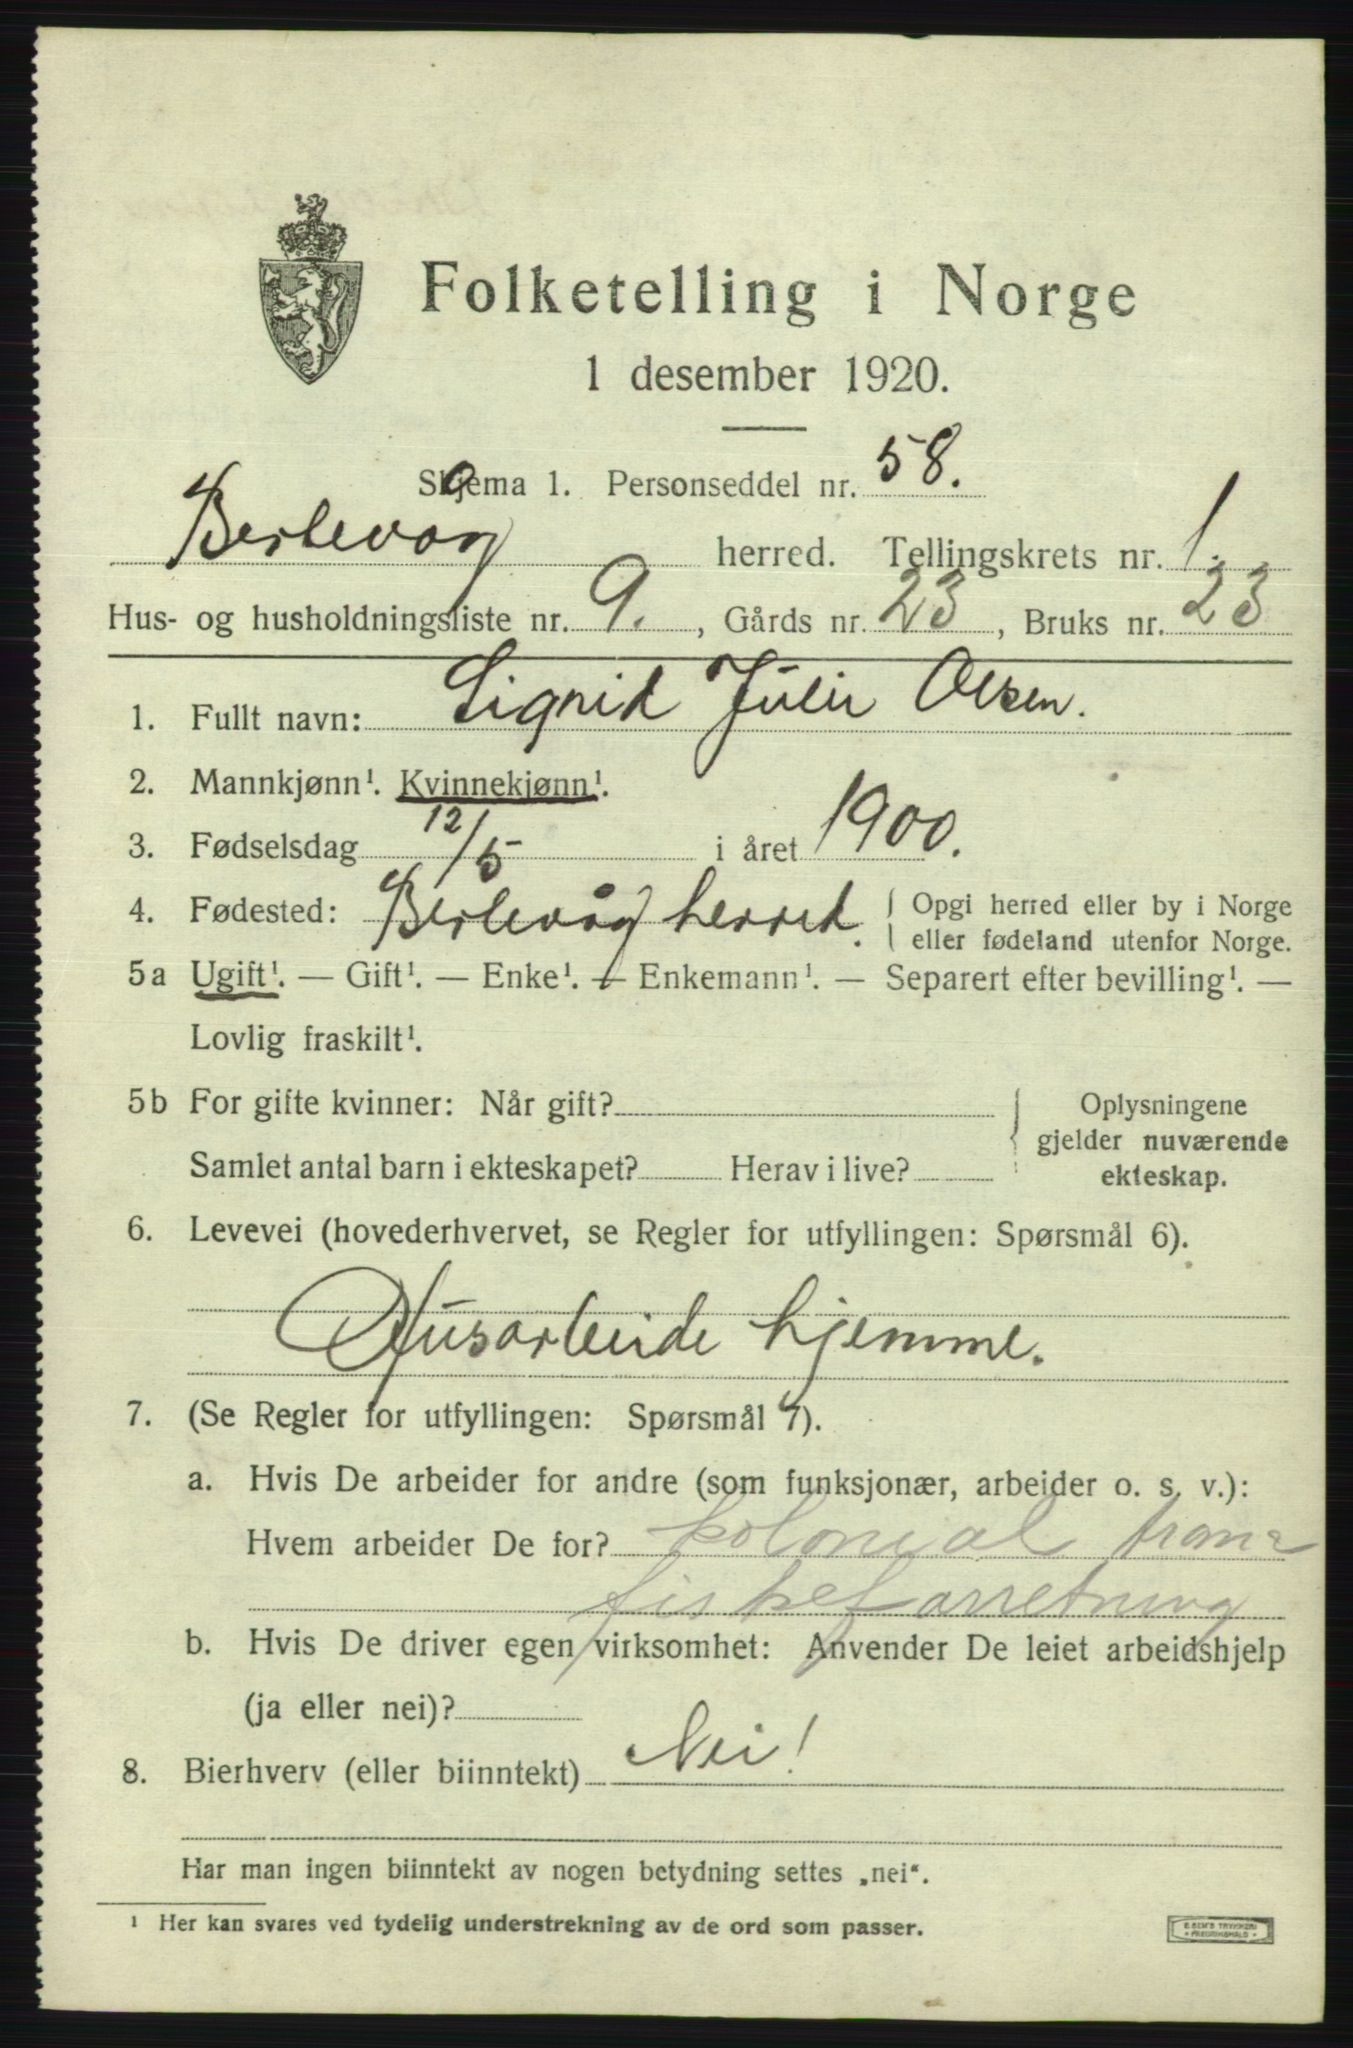 Folketelling i Norge
1 desember 1920.
Skjema 1. Personseddel nr. 58.
Berlevåg herred. Tellingskrets nr. 1.
Hus- og husholdningsliste nr. 9., Gårds nr. 23, Bruks nr. 23
1. Fullt navn: Signid Julie Olsen.
2. Mannkjønn¹. Kvinnekjønn¹.
3. Fødselsdag 12/5 i året 1900.
4. Fødested: Berlevåg herred. Opgi herred eller by i Norge
eller fødeland utenfor Norge.
5a Ugift¹. — Gift¹. — Enke¹. — Enkemann¹. — Separert efter bevilling¹. —
Lovlig fraskilt¹.
5b For gifte kvinner: Når gift? Oplysningene
gjelder nuværende
Samlet antal barn i ekteskapet? Herav i live? ekteskap.
6. Levevei (hovederhvervet, se Regler for utfyllingen: Spørsmål 6).
Husarbeide hjemme.
7. (Se Regler for utfyllingen: Spørsmål 7).
a. Hvis De arbeider for andre (som funksjonær, arbeider o. s. v.):
Hvem arbeider De for? kolonial
fiskeforretning
b. Hvis De driver egen virksomhet: Anvender De leiet arbeidshjelp
(ja eller nei)?
8. Bierhverv (eller biinntekt) Nei!
Har man ingen biinntekt av nogen betydning settes „nei“.
¹ Her kan svares ved tydelig understrekning av de ord som passer.
E. SEM'S TRYKKERI
FREDRIKSHALD